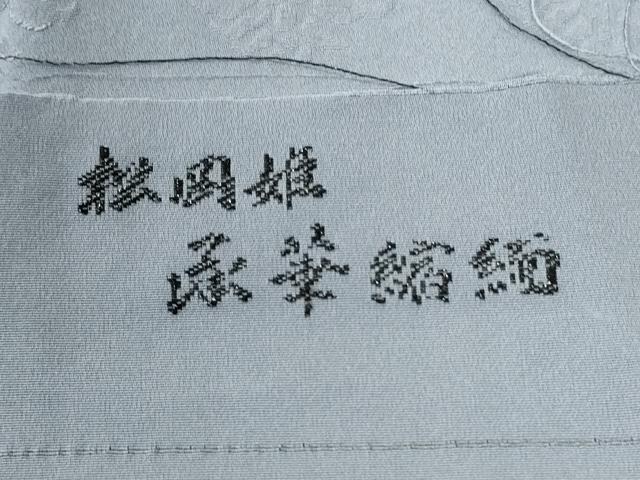 松岡姫
華縮緬